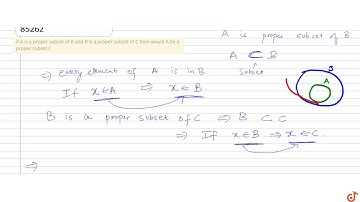 85262
If A is a proper subset of B and B is a proper subset of C then would A be a proper subset C
A is proper subset of B
A ⊂ B
Subset
⇒ every element of A is in B.
If x∈A ⇒ x∈B.
B
A
B is a proper subset of C ⇒ B ⊂ C
⇒ If x∈B ⇒ x∈C.
⇒